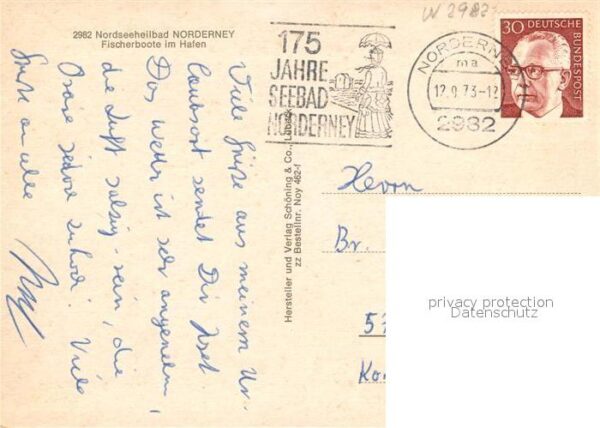 2982 Nordseeheilbad NORDERNEY
Fischerboote im Hafen
Viele Grüße aus meinem Ur-
laubsort sendet Dir
Das Wetter ist sehr angenehm,
die Luft salzig-rein, die
Viele
Grüße an alle
Hersteller und Verlag Schöning & Co., Lübeck
zz Bestellnr. Noy 462-f
W 2982
175
JAHRE
SEEBAD
NORDERNEY
NORDERNEY
ma
12.9.73-12
2982
30 DEUTSCHE
BUNDESPOST
Herrn
Br.
privacy protection
Datenschutz
53
Ko